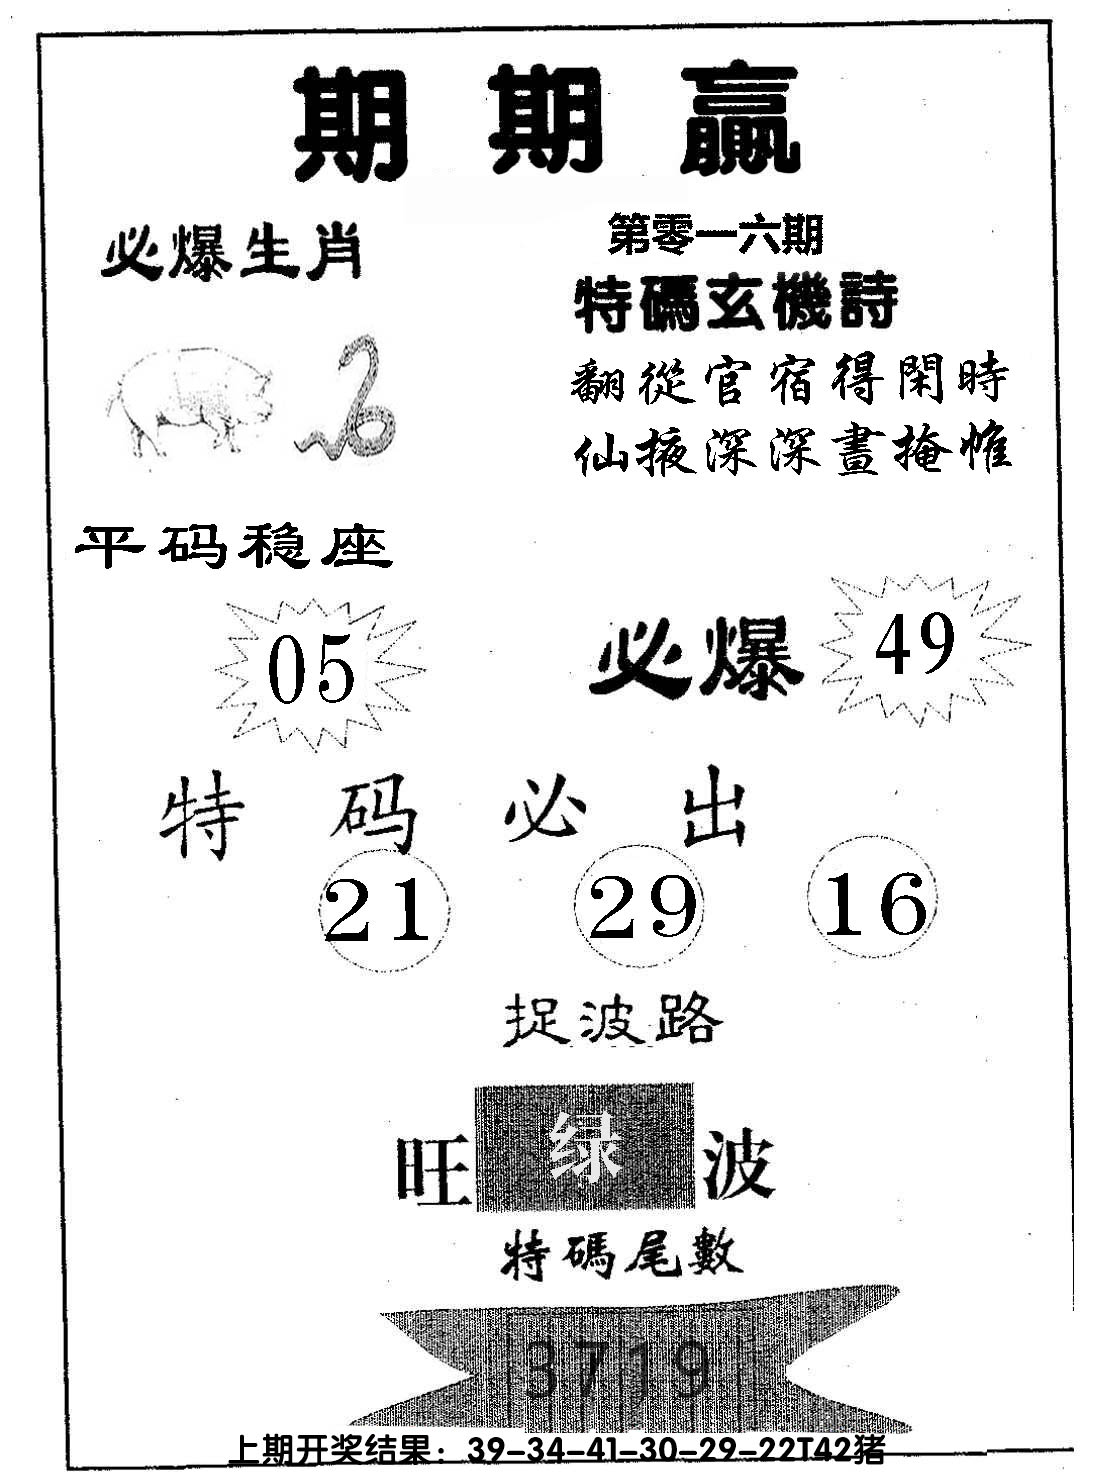 期期贏
第零一六期
必爆生肖
特碼玄機詩
翻從官宿得閑時
仙掖深深晝掩帷
平码稳座
05
必爆 49
特码必出
21 29 16
捉波路
旺绿波
特碼尾數
3719
上期开奖结果：39-34-41-30-29-22T42猪